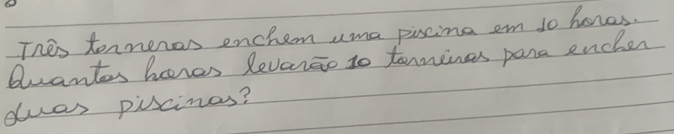 Três torneras enchem uma piscina em 10 horas.
Quantas horas levarão 10 torneiras para encher
duas piscinas?